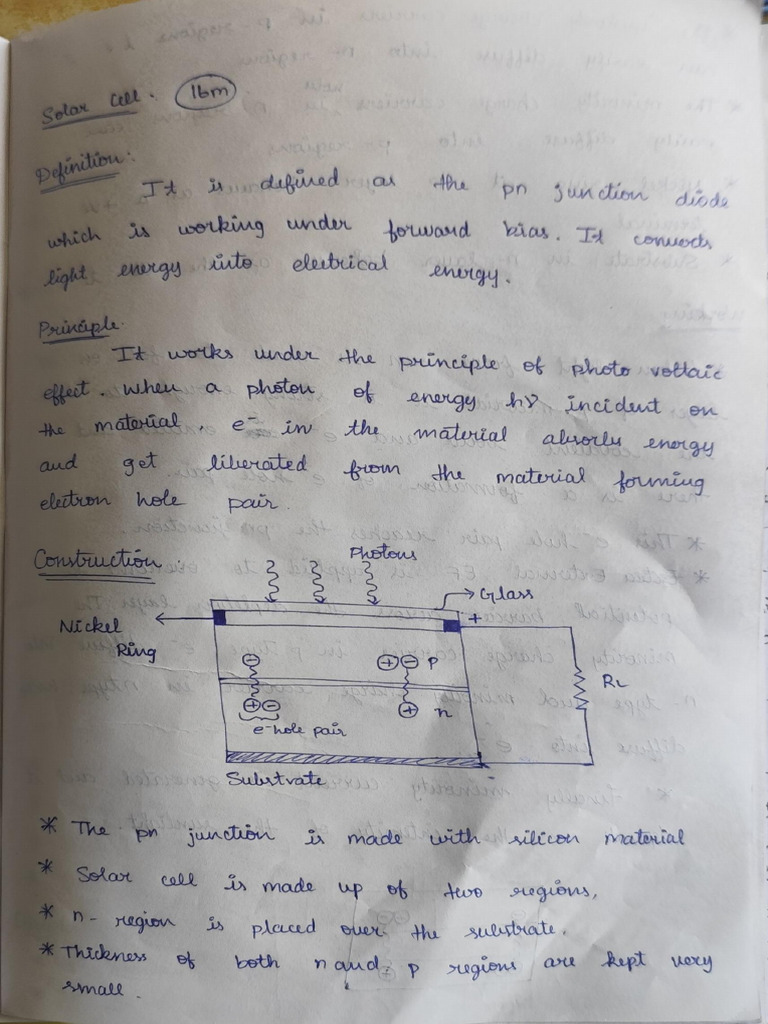 Solar Cell. 16m
Definition:
It is defined as the pn junction diode
which is working under forward bias. It converts
light energy into electrical energy.
Principle.
It works under the principle of photo voltaic
effect. When a photon of energy hν incident on
the material, e⁻ in the material absorbs energy
and get liberated from the material forming
electron hole pair.
Construction.
Photons
Glass
Nickel
Ring
+
⊖ ⊕⊖ P
RL
⊕⊖ ⊕ n
e⁻hole pair
-
Substrate
* The pn junction is made with silicon material
* Solar cell is made up of two regions,
* n- region is placed over the substrate.
* Thickness of both n and p regions are kept very
small.